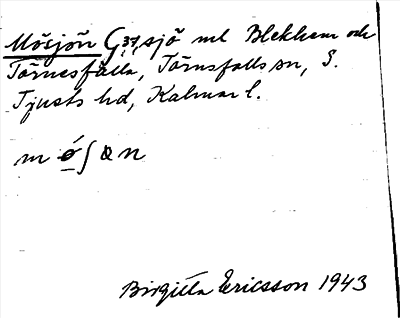 Mösjön G37, sjö ml Blekhem och
Törnesfalla, Törnsfalls sn, S.
Tjusts hd, Kalmar l.
m ó ʃ ɷ n
Birgitta Ericsson 1943